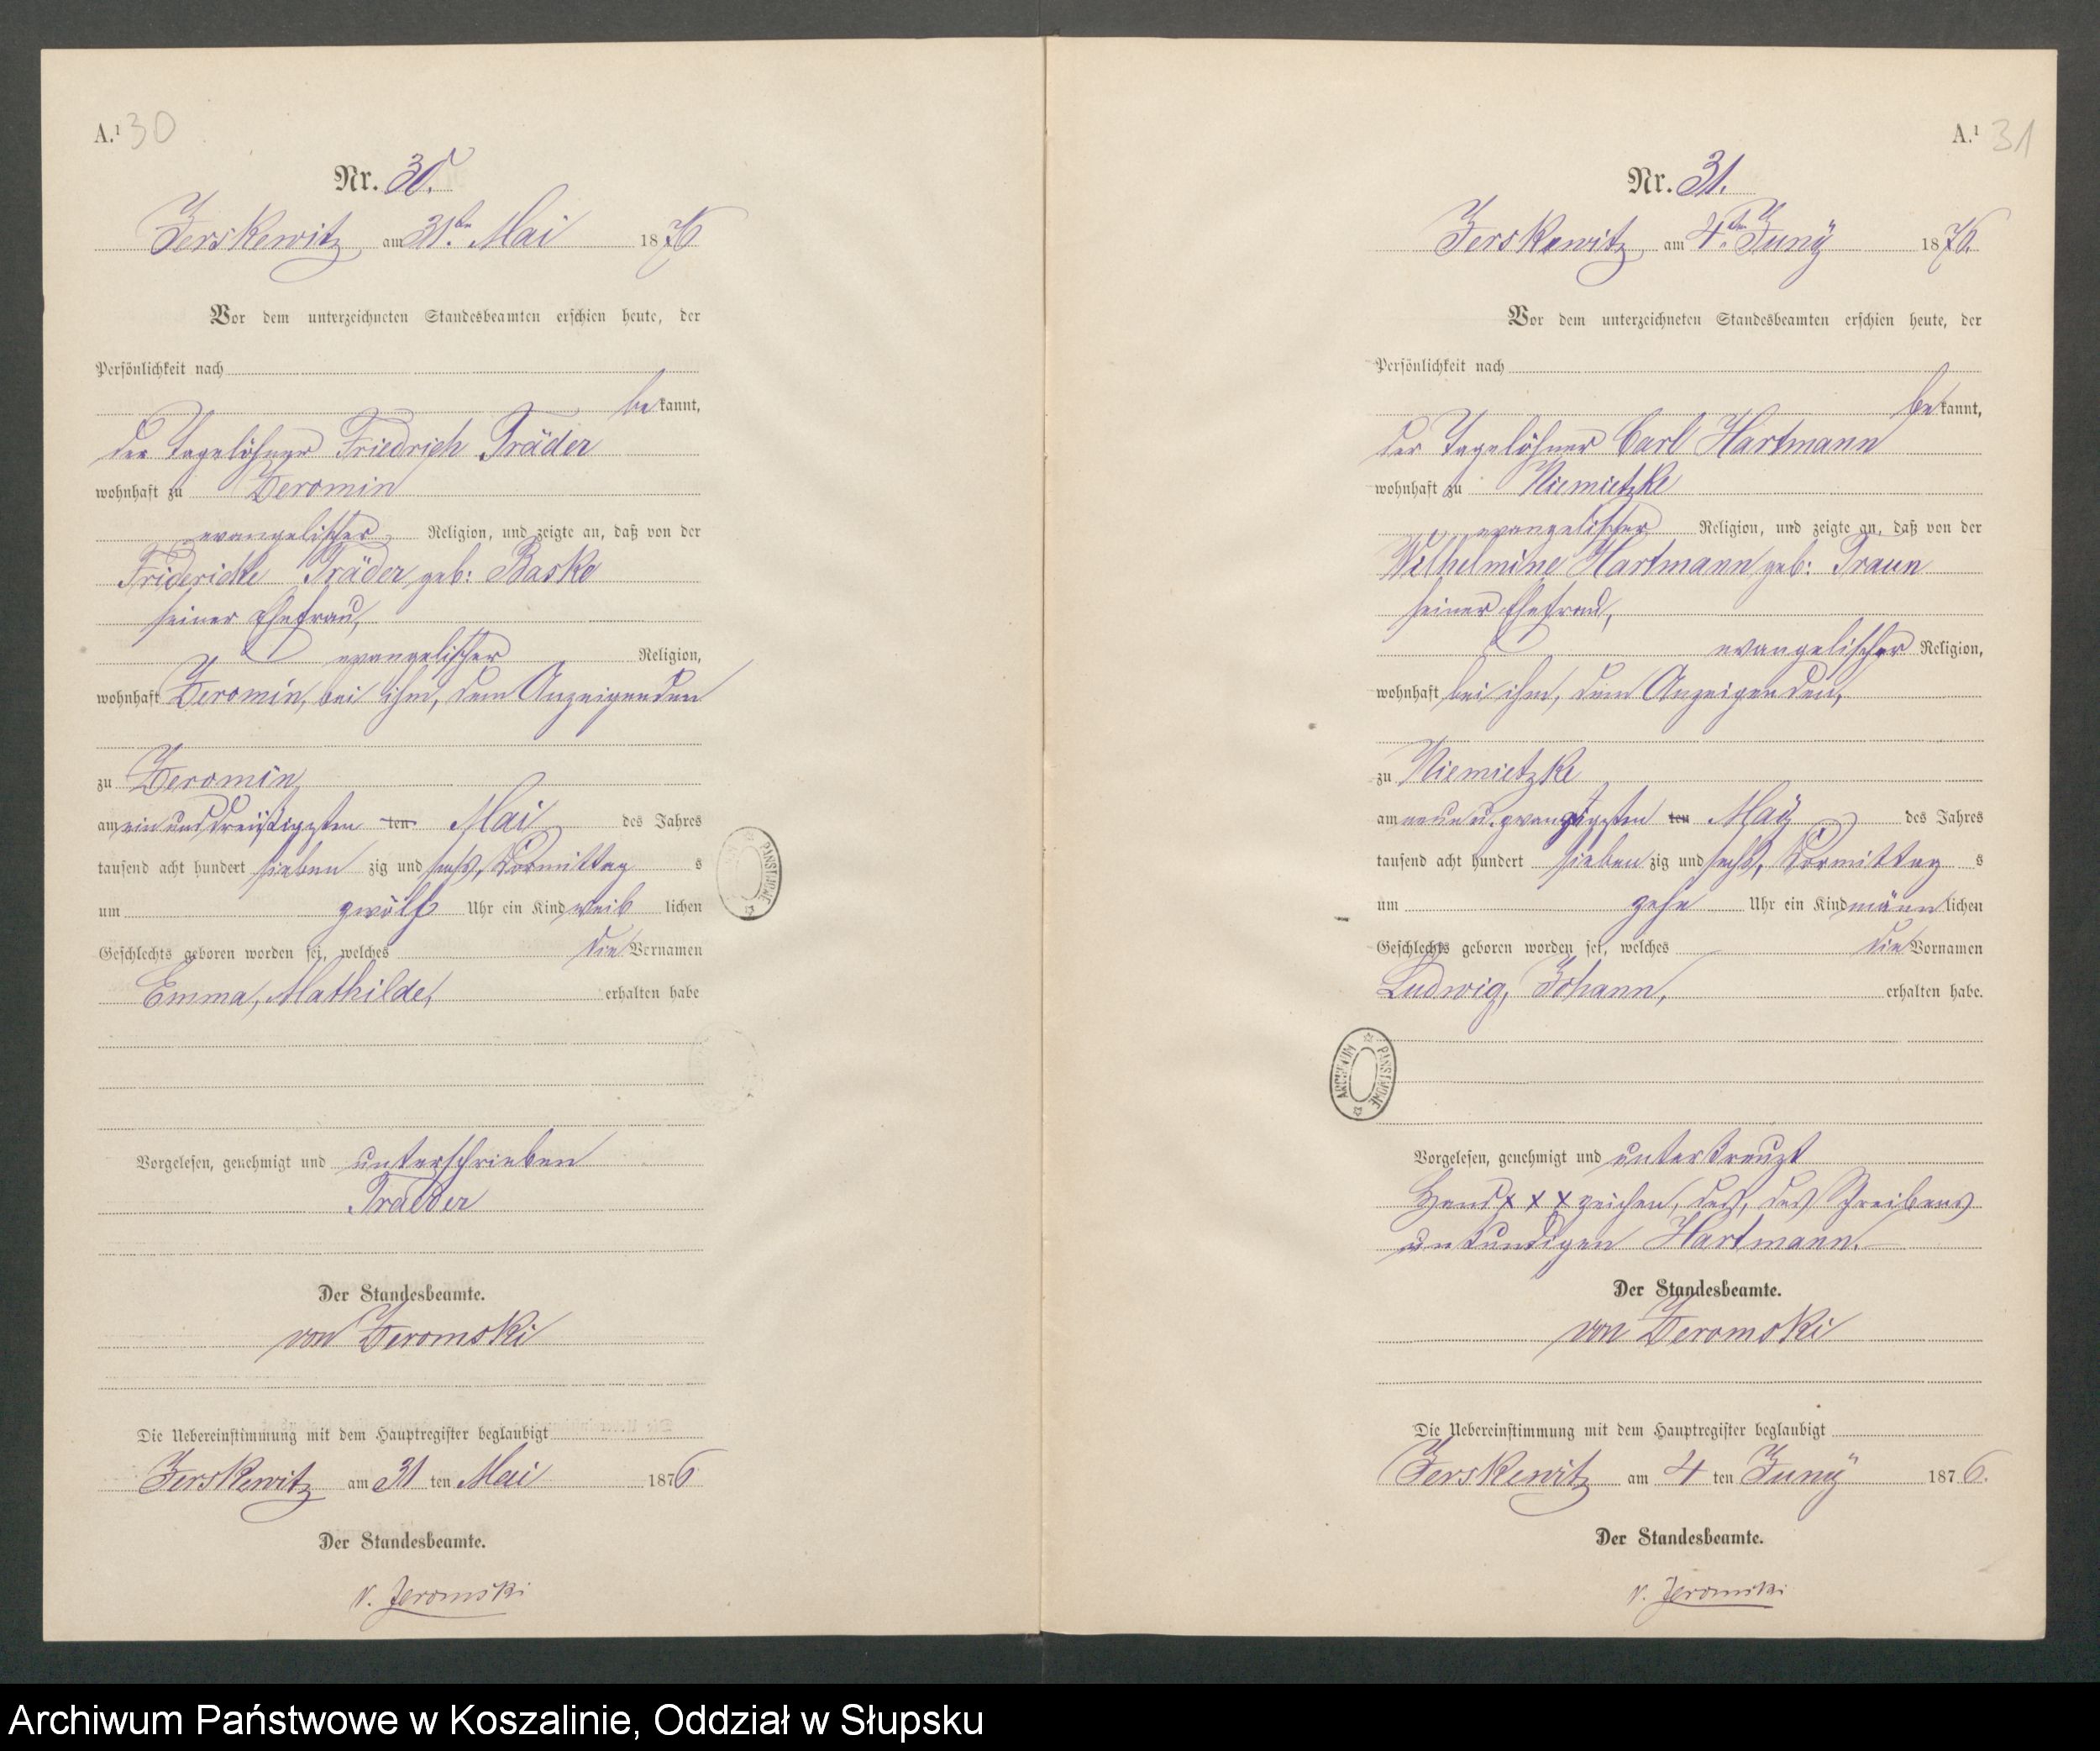 A.¹ 30
Nr. 30.
Zerskewitz am 31.ten Mai 1876
Vor dem unterzeichneten Standesbeamten erschien heute, der
Persönlichkeit nach
bekannt,
der Tagelöhner Friedrich Träder
wohnhaft zu Zeromin
evangelischer Religion, und zeigte an, daß von der
Träder, geb: Basko
seiner Ehefrau,
evangelischer Religion,
wohnhaft Zeromin, bei ihm, dem Anzeigenden
zu Zeromin
am ein und dreißigsten ten Mai des Jahres
tausend acht hundert sieben zig und sechs, Vormittag s
um zwölf Uhr ein Kind weib lichen
Geschlechts geboren worden sei, welches die Vornamen
Emma, Mathilde, erhalten habe
Vorgelesen, genehmigt und unterschrieben
Traeder
Der Standesbeamte.
von Zeromski
Die Uebereinstimmung mit dem Hauptregister beglaubigt
Zerskewitz am 31 ten Mai 1876
Der Standesbeamte.
v. Zeromski
A.¹ 31
Nr. 31.
Zerskewitz am 4.ten Juny 1876.
Vor dem unterzeichneten Standesbeamten erschien heute, der
Persönlichkeit nach
bekannt,
der Tagelöhner Carl Hartmann
wohnhaft zu Niemietzke
evangelischer Religion, und zeigte an, daß von der
Wilhelmine Hartmann geb: Traun
seiner Ehefrau,
evangelischer Religion,
wohnhaft bei ihm, dem Anzeigenden,
zu Niemietzke
am neun u. zwanzigsten ten May des Jahres
tausend acht hundert sieben zig und sechs, Vormittag s
um zehn Uhr ein Kind männ lichen
Geschlechts geboren worden sei, welches die Vornamen
Ludwig, Johann, erhalten habe.
ARCHIWUM PAŃSTWOWE
Vorgelesen, genehmigt und unterkreuzt
Hand x x x zeichen, des, des Schreibens
unkundigen Hartmann.
Der Standesbeamte.
von Zeromski
Die Uebereinstimmung mit dem Hauptregister beglaubigt
Zerskewitz am 4 ten Juny 1876.
Der Standesbeamte.
v. Zeromski
Archiwum Państwowe w Koszalinie, Oddział w Słupsku